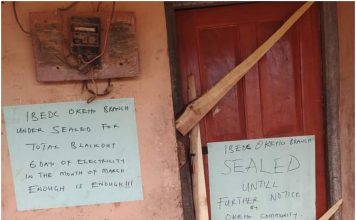 IBEDC OKEHO BRANCH
UNDER SEALED FOR
TOTAL BLACKOUT
6 DAY OF ELECTRICITY
IN THE MONTH OF MARCH
ENOUGH IS ENOUGH!!!
IBEDC OKEHO BRANCH
SEALED
UNTILL
FURTHER NOTICE
BY
OKEHO COMMUNITY